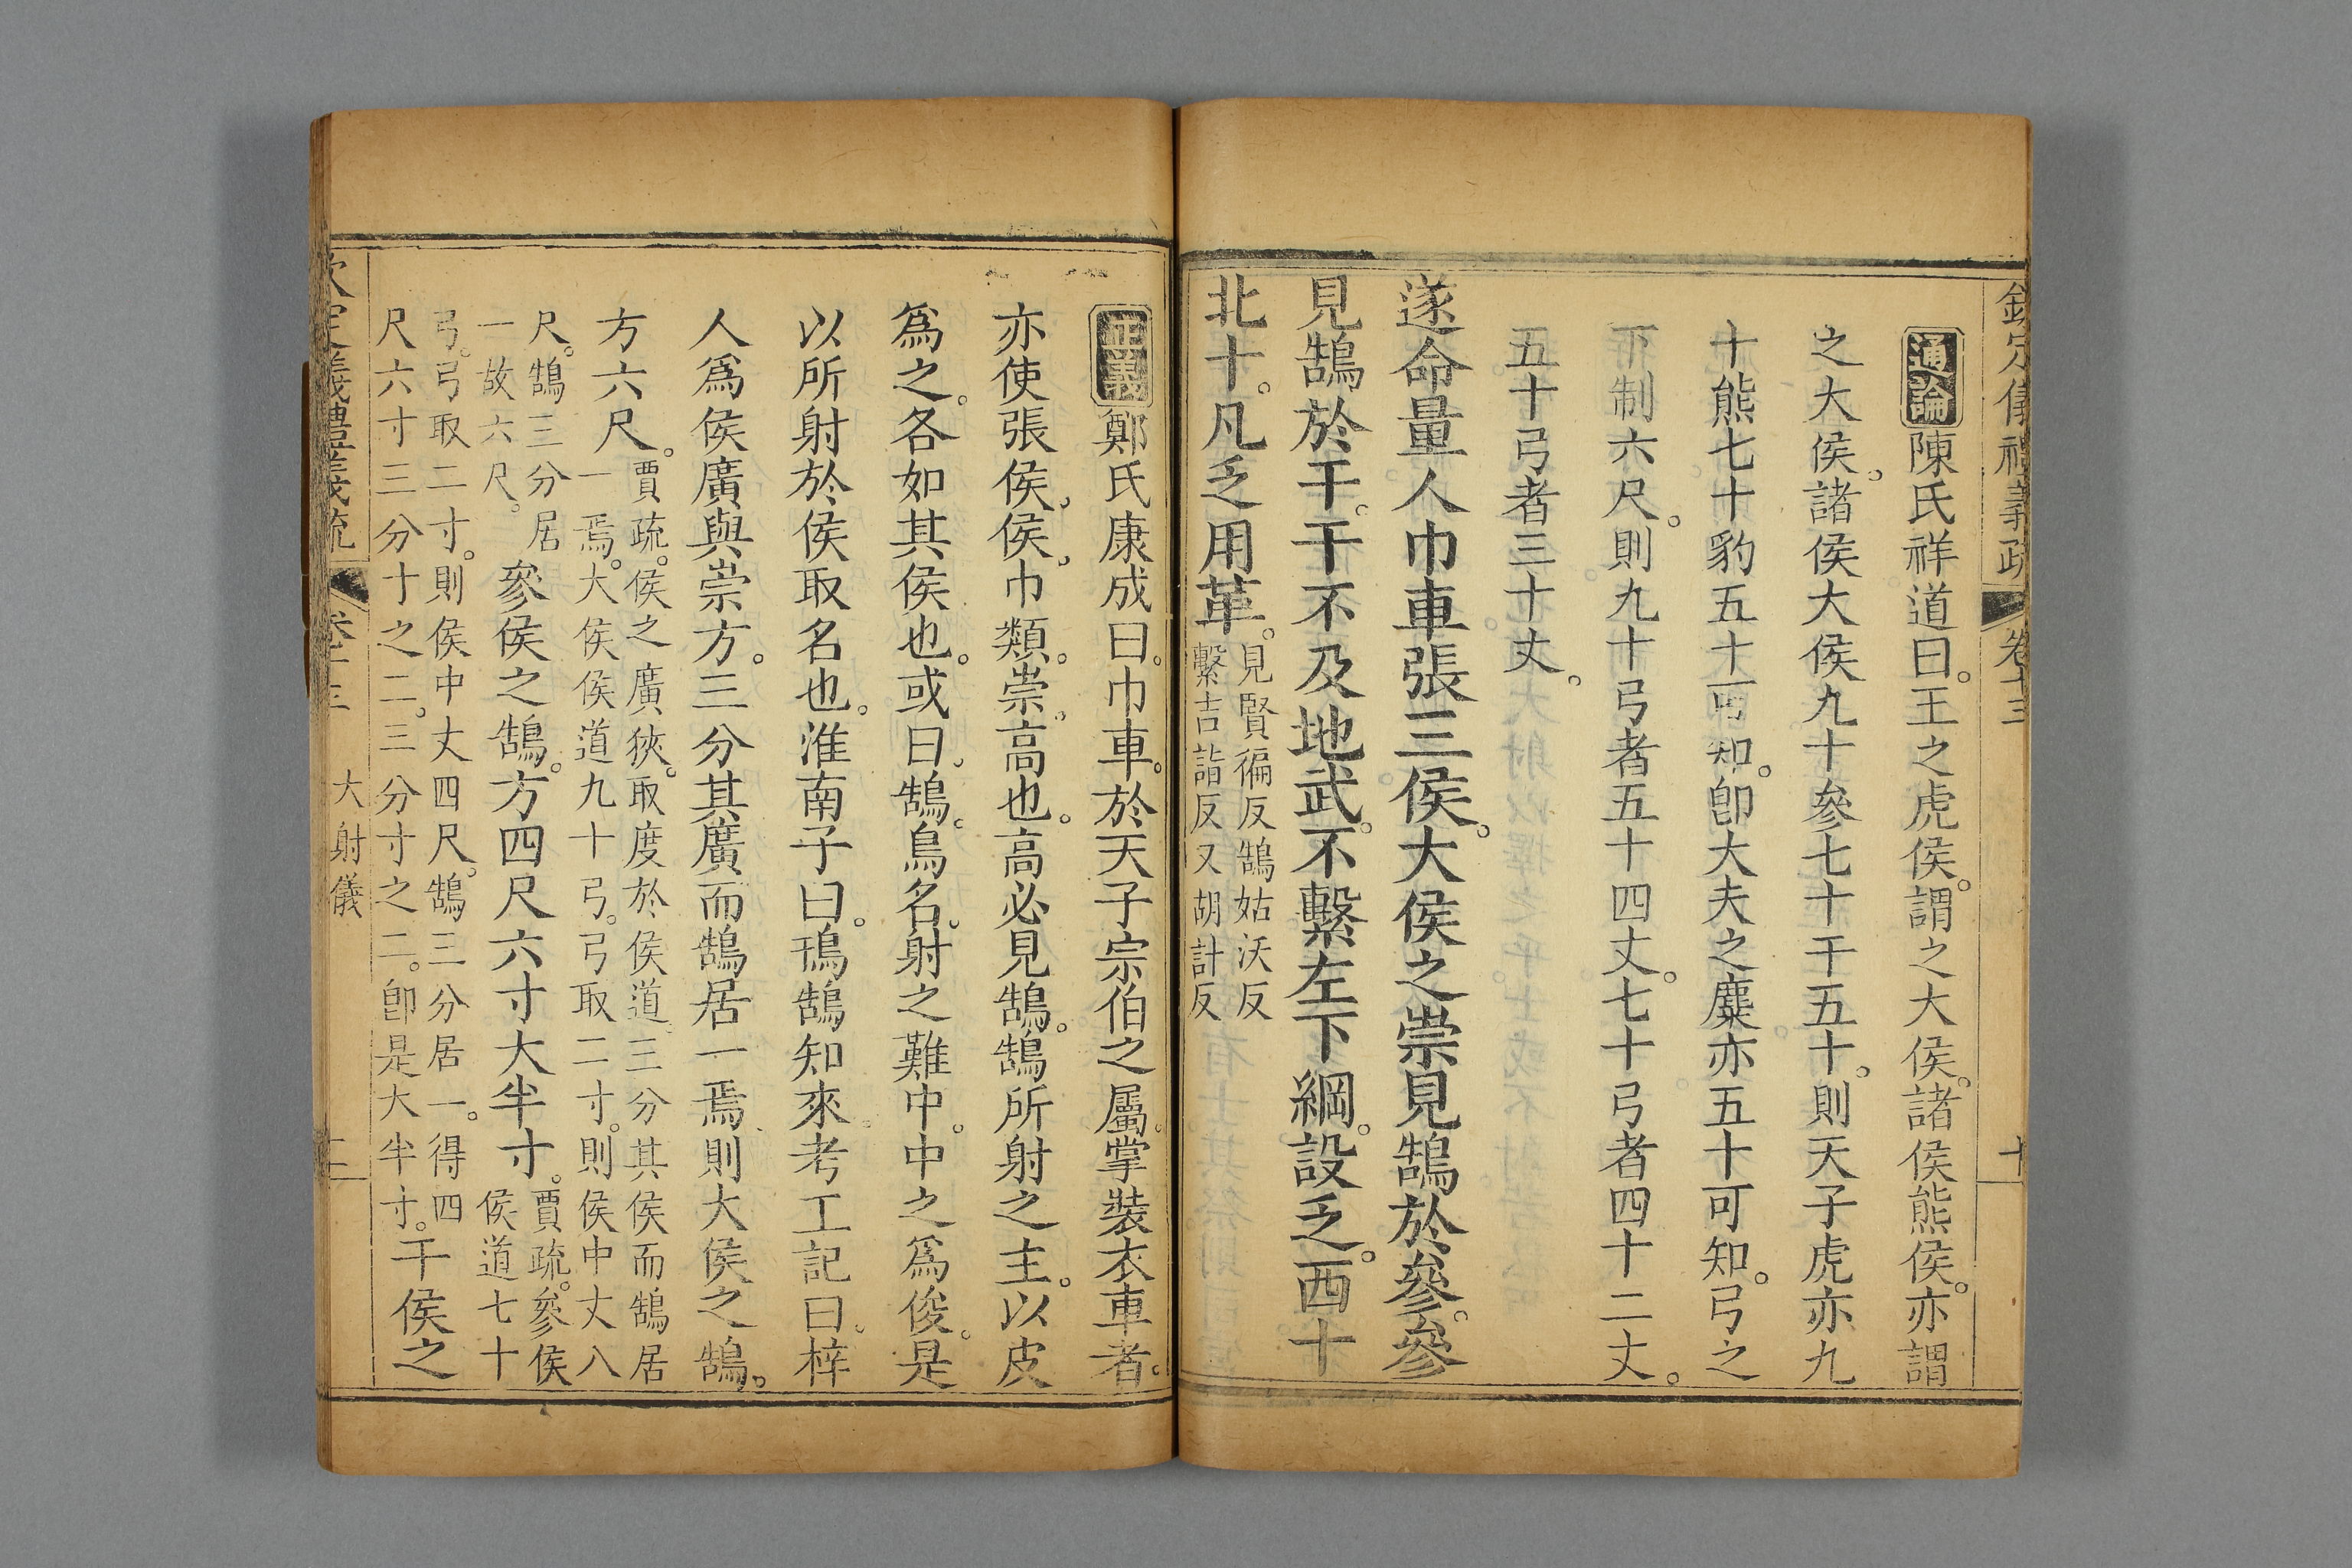 欽定儀禮義疏 卷十三 十
通論陳氏祥道曰。王之虎侯。謂之大侯。諸侯熊侯。亦謂
之大侯。諸侯大侯九十參七十干五十。則天子虎亦九
十熊七十豹五十可知。卽大夫之麋亦五十可知。弓之
下制六尺。則九十弓者五十四丈。七十弓者四十二丈。
五十弓者三十丈。
遂命量人巾車張三侯。大侯之崇見鵠於參。參
見鵠於干。干不及地武。不繫左下綱。設乏。西十
北十。凡乏用革。
見賢徧反鵠姑沃反
繫吉詣反又胡計反
正義鄭氏康成曰。巾車。於天子宗伯之屬。掌裝衣車者。
亦使張侯。侯。巾類。崇。高也。高必見鵠。鵠所射之主。以皮
爲之。各如其侯也。或曰。鵠。鳥名。射之難中。中之爲俊。是
以所射於侯取名也。淮南子曰。鳱鵠知來。考工記曰。梓
人爲侯廣與崇方。三分其廣而鵠居一焉。則大侯之鵠。
方六尺。
賈疏。侯之廣狹。取度於侯道。三分其侯而鵠居
一焉。大侯侯道九十弓。弓取二寸。則侯中丈八
尺。鵠三分居
一故六尺。
參侯之鵠。方四尺六寸大半寸。
賈疏。參侯
侯道七十
弓。弓取二寸。則侯中丈四尺。鵠三分居一。得四
尺六寸三分十之二。三分寸之二。卽是大半寸。
干侯之
義禮義疏 大射儀